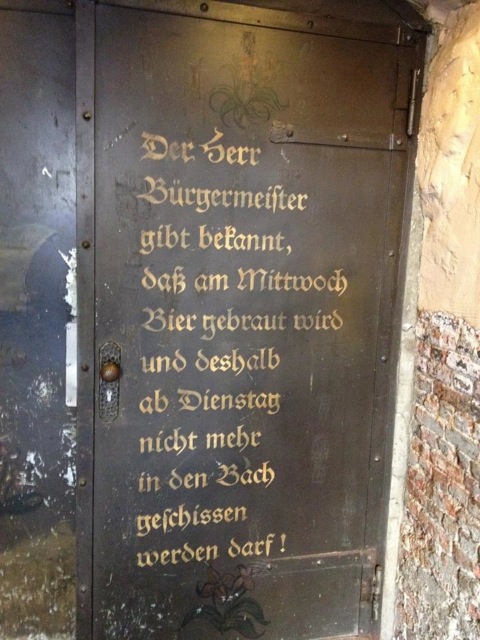 Der Herr
Bürgermeiſter
gibt bekannt,
daß am Mittwoch
Bier gebraut wird
und deshalb
ab Dienstag
nicht mehr
in den Bach
geſchissen
werden darf!